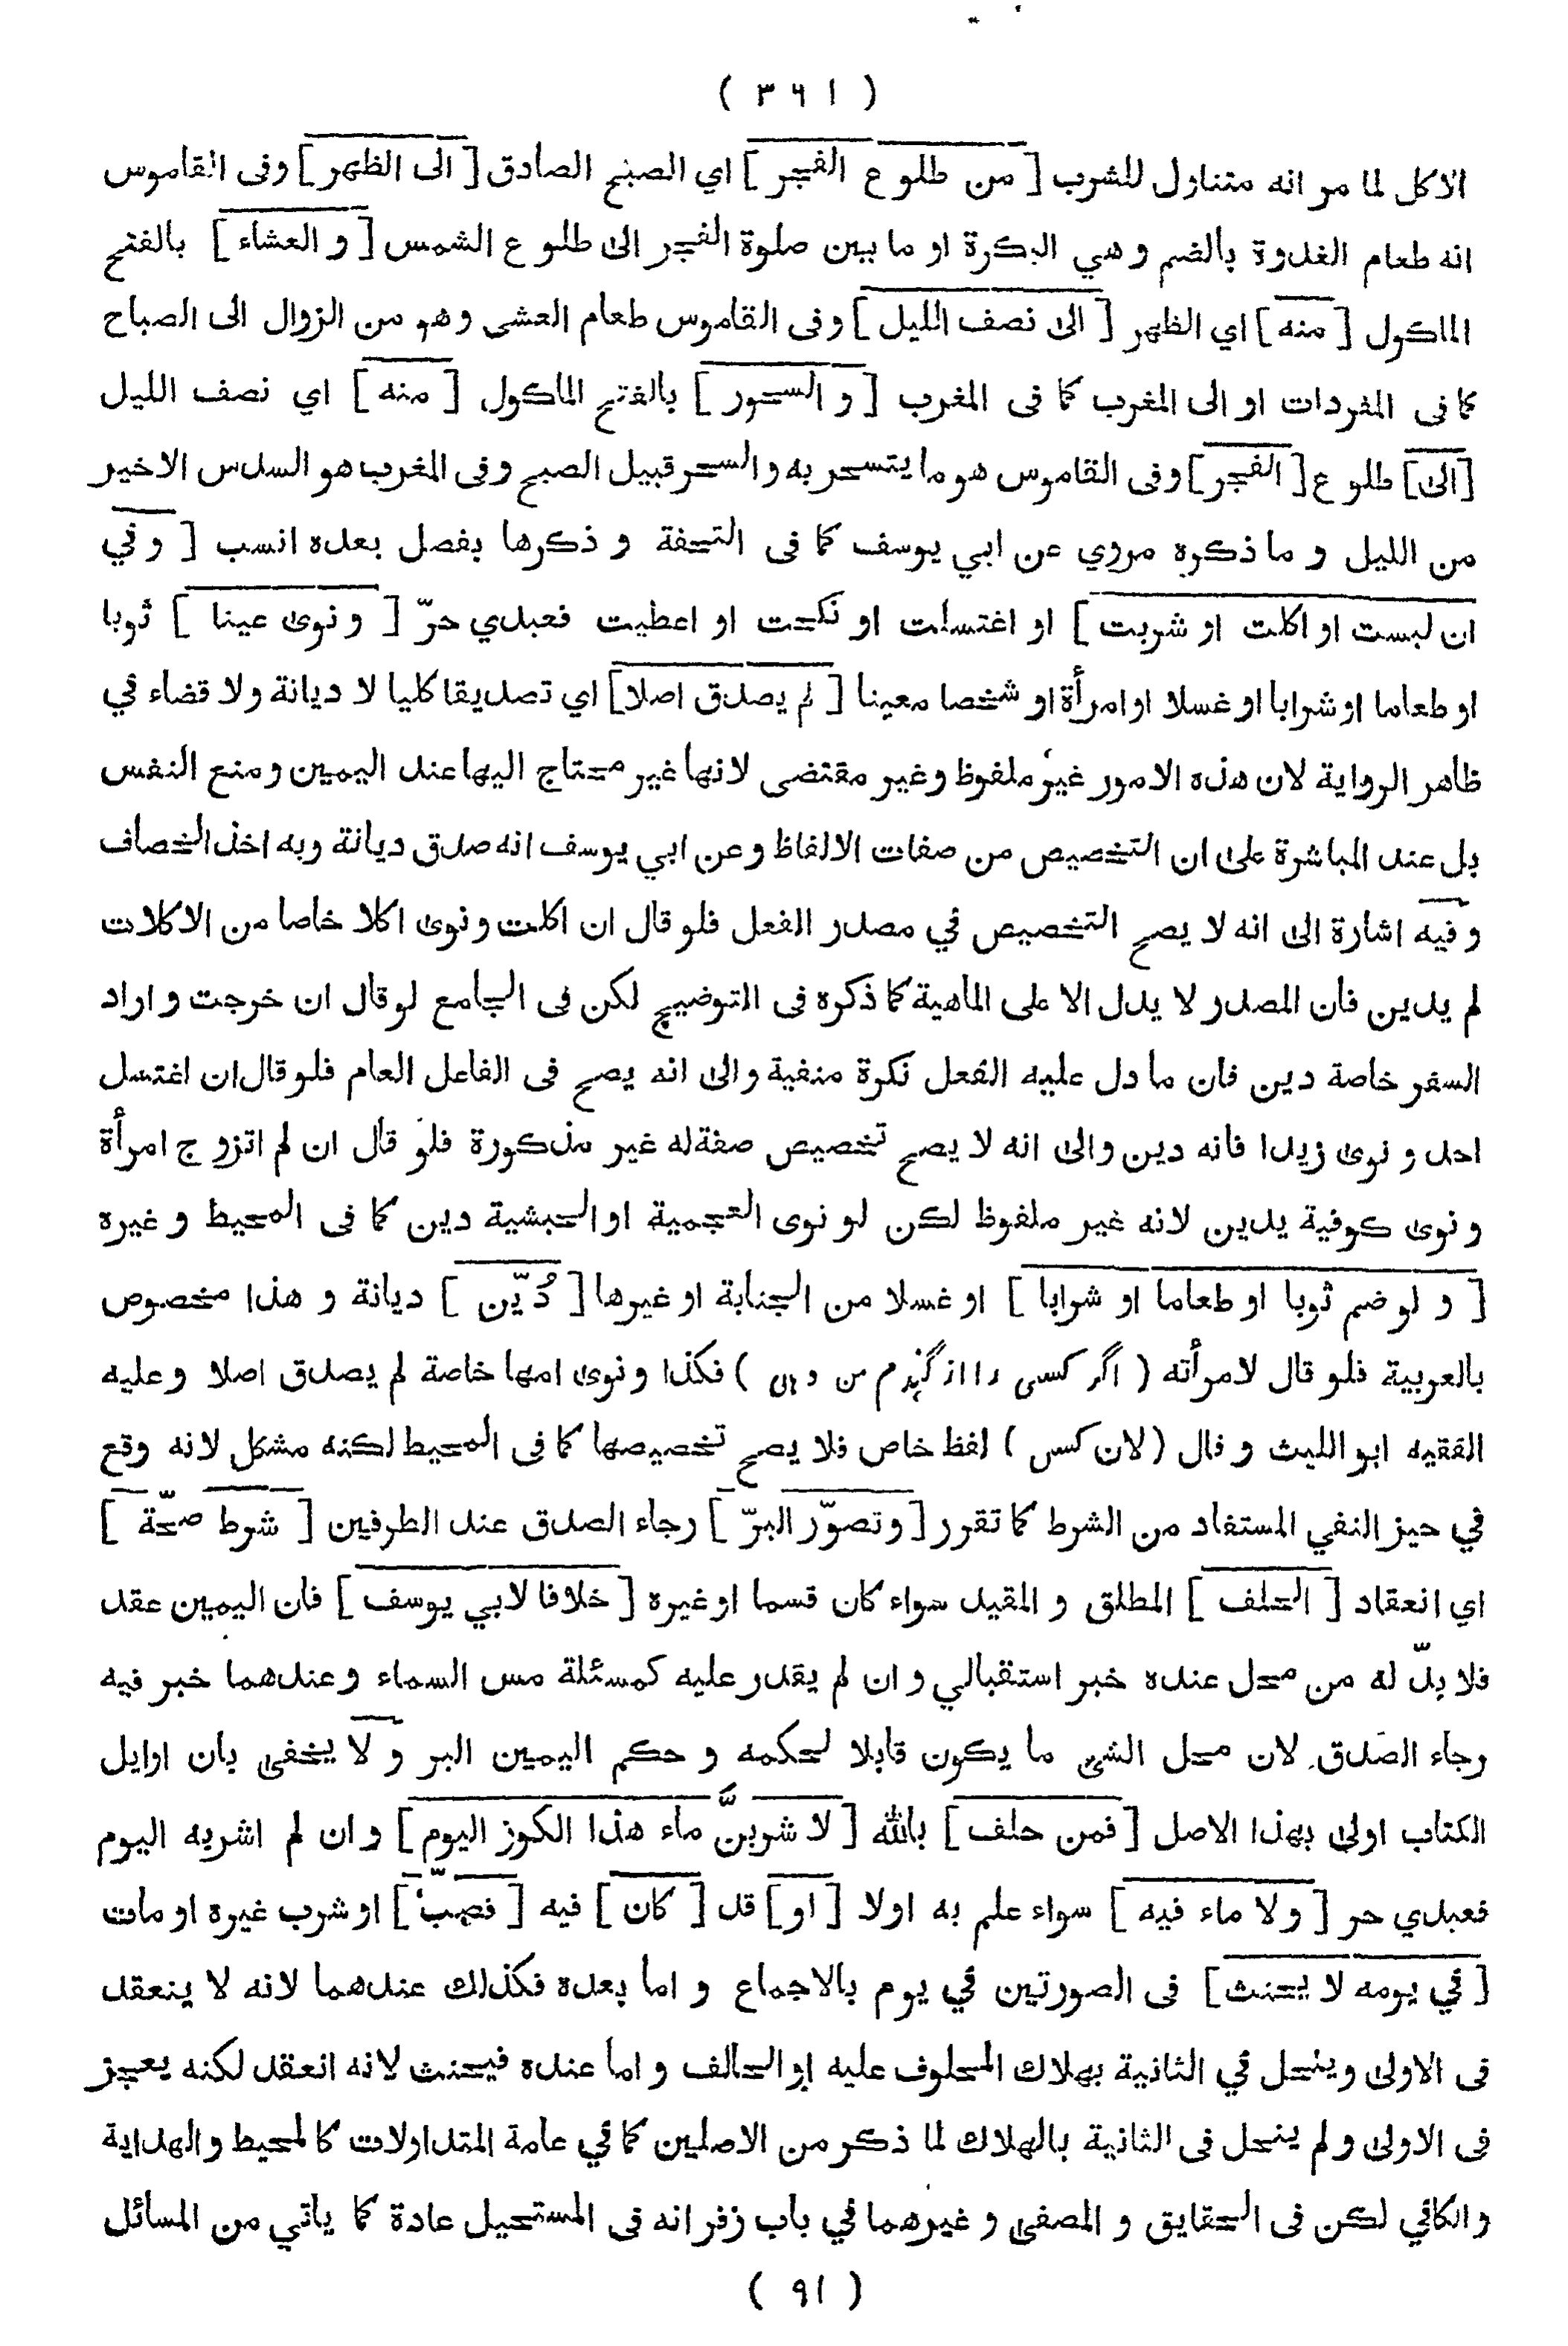 ( ٣٦١ )
الاكل لما مر انه متناول للشرب [ من طلوع الفجر ] اي الصبح الصادق [ الى الظهر ] وفى القاموس
انه طعام الغدوة بالضم وهي البكرة او ما بين صلوة الفجر الى طلوع الشمس [ و العشاء ] بالفتح
الماكول [ منه ] اي الظهر [ الى نصف الليل ] وفى القاموس طعام العشى وهو من الزوال الى الصباح
كما فى المفردات او الى المغرب كما فى المغرب [ و السحور ] بالفتح الماكول [ منه ] اي نصف الليل
[ الى ] طلوع [ الفجر ] وفى القاموس هو ما يتسحر به والسحر قبيل الصبح وفى المغرب هو السدس الاخير
من الليل و ما ذكره مروي عن ابي يوسف كما فى التحفة و ذكرها بفصل بعده انسب [ وفي
ان لبست او اكلت او شربت ] او اغتسلت او نكحت او اعطيت فعبدي حرّ [ و نوى عينا ] ثوبا
او طعاما او شرابا او غسلا او امرأة او شخصا معينا [ لم يصدق اصلا ] اي تصديقا كليا لا ديانة ولا قضاء في
ظاهر الرواية لان هذه الامور غير ملفوظ وغير مقتضى لانها غير محتاج اليها عند اليمين ومنع النفس
بل عند المباشرة على ان التخصيص من صفات الالفاظ وعن ابي يوسف انه صدق ديانة وبه اخذ الخصاف
وفيه اشارة الى انه لا يصح التخصيص في مصدر الفعل فلو قال ان اكلت ونوى اكلا خاصا من الاكلات
لم يدين فان المصدر لا يدل الا على الماهية كما ذكره فى التوضيح لكن فى الجامع لو قال ان خرجت واراد
السفر خاصة دين فان ما دل عليه الفعل نكرة منفية والى انه يصح فى الفاعل العام فلو قال ان اغتسل
احد و نوى زيدا فانه دين والى انه لا يصح تخصيص صفة له غير مذكورة فلو قال ان لم اتزوج امرأة
ونوى كوفية يدين لانه غير ملفوظ لكن لو نوى العجمية او الحبشية دين كما فى المحيط وغيره
[ و لو ضم ثوبا او طعاما او شرابا ] او غسلا من الجنابة او غيرها [ دُيّن ] ديانة و هذا مخصوص
بالعربية فلو قال لامرأته ( اگر كسى را از گيرم من) فكذا ونوى امها خاصة لم يصدق اصلا وعليه
الفقيه ابو الليث و قال (لان كسى ) لفظ خاص فلا يصح تخصيصها كما فى المحيط لكنه مشكل لانه وقع
في حيز النفي المستفاد من الشرط كما تقرر [ وتصوّر البرّ ] رجاء الصدق عند الطرفين [ شرط صحّة ]
اي انعقاد [ الحلف ] المطلق و المقيد سواء كان قسما او غيره [ خلافا لابي يوسف ] فان اليمين عقد
فلا بدّ له من محل عنده خبر استقبالي و ان لم يقدر عليه كمسئلة مس السماء وعندهما خبر فيه
رجاء الصدق لان محل الشئ ما يكون قابلا لحكمه و حكم اليمين البر و لا يخفى بان اوايل
الكتاب اولى بهذا الاصل [ فمن حلف ] بالله [ لاشربنّ ماء هذا الكوز اليوم ] و ان لم اشربه اليوم
فعبدي حر [ ولا ماء فيه ] سواء علم به اولا [ او ] قد [ كان ] فيه [ فصبّ ] او شرب غيره او مات
[ في يومه لا يحنث ] فى الصورتين في يوم بالاجماع و اما بعده فكذلك عندهما لانه لا ينعقد
فى الاولى وينحل في الثانية بهلاك المحلوف عليه او الحالف و اما عنده فيحنث لانه انعقد لكنه يعجز
فى الاولى ولم ينحل فى الثانية بالهلاك لما ذكر من الاصلين كما في عامة المتداولات كالمحيط والهداية
والكافي لكن فى الحقايق و المصفى و غيرهما في باب زفر انه فى المستحيل عادة كما ياتي من المسائل
( ٩١ )